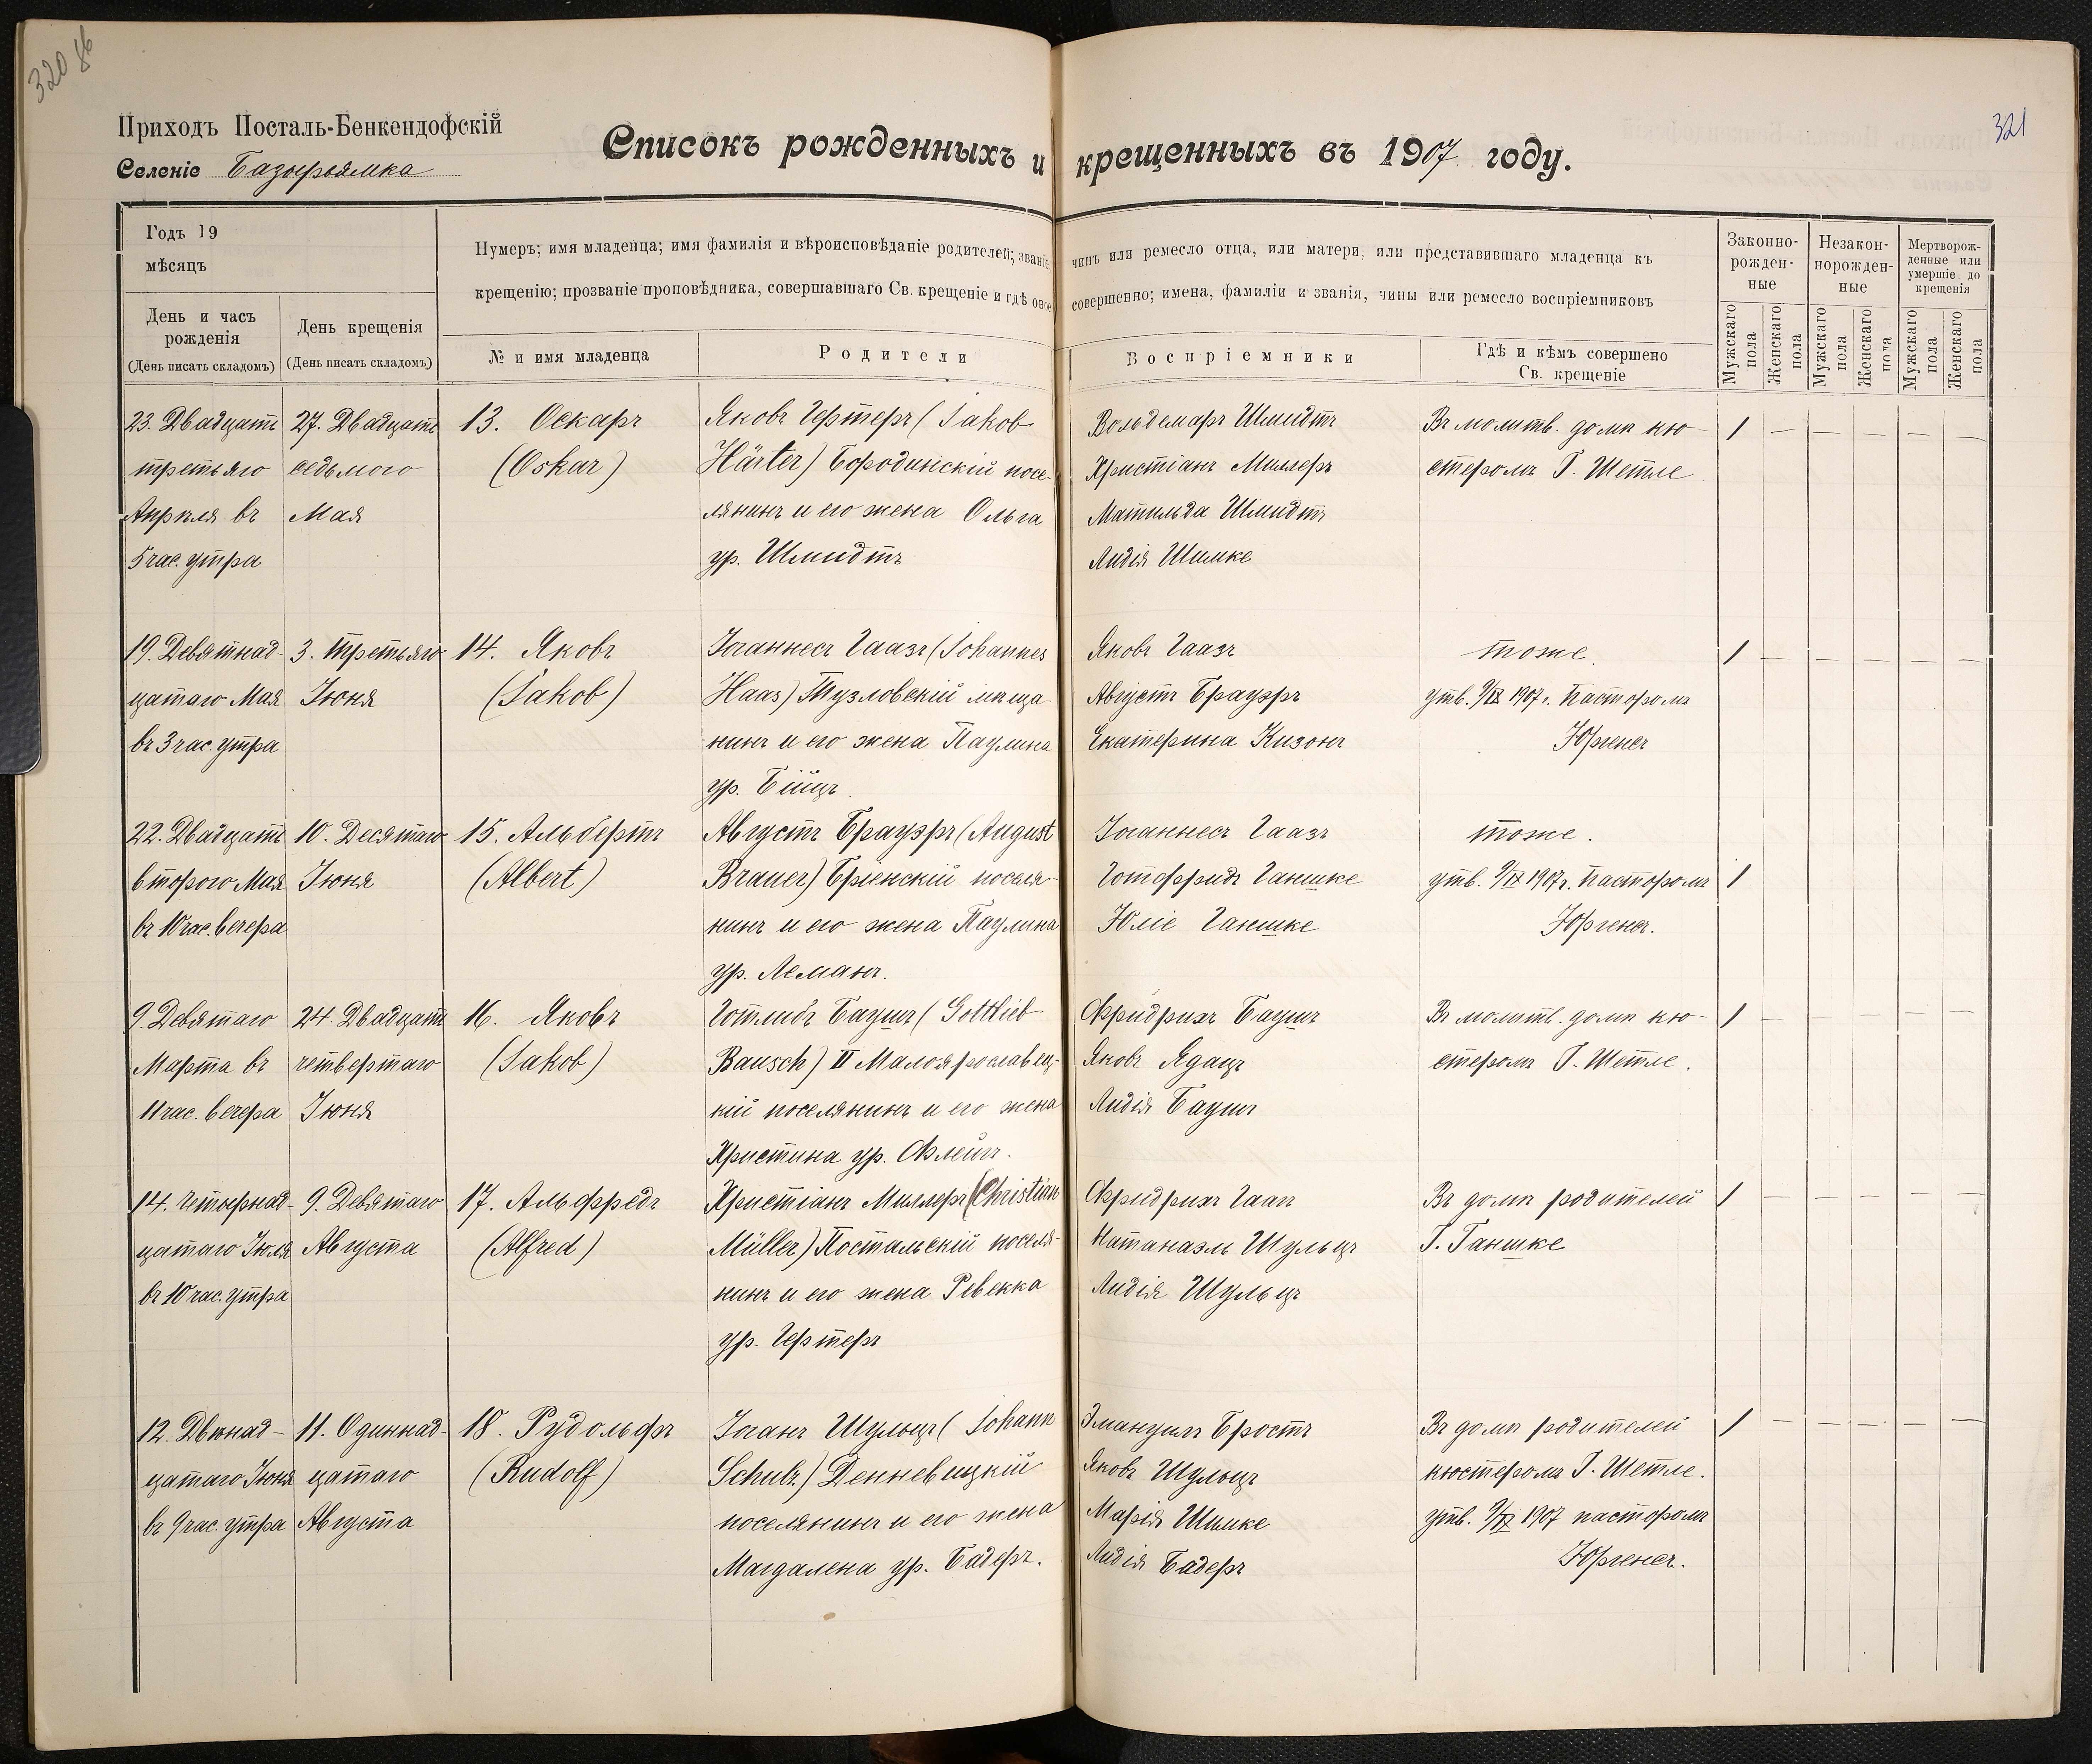 320 об
321
Приходъ Посталь-Бенкендофскій
Селеніе Базырямка
Списокъ рожденныхъ и крещенныхъ въ 1907 году.
Годъ 19
мѣсяцъ
День и часъ рожденія
(День писать складомъ)
День крещенія
(День писать складомъ)
Нумеръ; имя младенца; имя фамилія и вѣроисповѣданіе родителей; званіе, чинъ или ремесло отца, или матери, или представившаго младенца къ
крещенію; прозваніе проповѣдника, совершавшаго Св. крещеніе и гдѣ оное совершенно; имена, фамиліи и званія, чины или ремесло воспріемниковъ
№ и имя младенца
Родители
Воспріемники
Гдѣ и кѣмъ совершено
Св. крещеніе
Законно-
рожден-
ные
Незакон-
норожден-
ные
Мертворож-
денные или
умершіе до
крещенія
Мужскаго пола
Женскаго пола
Мужскаго пола
Женскаго пола
Мужскаго пола
Женскаго пола
23. Двадцать
третьяго
Апрѣля въ
5 час. утра
27. Двадцать
седьмого
Мая
13. Оскаръ
(Oskar)
Яковъ Гертеръ (Jakob
Härter) Бородинскій посе-
лянинъ и его жена Ольга
ур. Шмидтъ
Вольдемаръ Шмидтъ
Христіанъ Миллеръ
Матильда Шмидтъ
Лидія Шимке
Въ молитв. домѣ кю-
стеромъ Г. Шетле
1 — — — — —
19. Девятнад-
цатаго Мая
въ 3 час. утра
3. Третьяго
Іюня
14. Яковъ
(Jakob)
Іоганнесъ Гаазъ (Johannes
Haas) Тузловскій мѣща-
нинъ и его жена Паулина
ур. Бійцъ
Яковъ Гаазъ
Августъ Брауэръ
Екатерина Кизонъ
тоже.
утв. 9/IX 1907 г. Пасторомъ
Юргенсъ
1 — — — — —
22. Двадцать
второго Мая
въ 10 час. вечера
10. Десятаго
Іюня
15. Альбертъ
(Albert)
Августъ Брауэръ (August
Brauer) Бріенскій поселя-
нинъ и его жена Паулина
ур. Леманъ.
Іоганнесъ Гаазъ
Готфридъ Ганшке
Юліе Ганшке
тоже.
утв. 9/IX 1907 г. Пасторомъ
Юргенсъ.
1 — — — — —
9. Девятаго
Марта въ
11 час. вечера
24. Двадцать
четвертаго
Іюня
16. Яковъ
(Jakob)
Готлибъ Баушъ (Gottlieb
Bausch) II Малоярославец-
кій поселянинъ и его жена
Христина ур. Флейгъ.
Фридрихъ Баушъ
Яковъ Ядацъ
Лидія Баушъ
Въ молитв. домѣ кю-
стеромъ Г. Шетле.
1 — — — — —
14. Четырнад-
цатаго Іюля
въ 10 час. утра
9. Девятаго
Августа
17. Альфредъ
(Alfred)
Христіанъ Миллеръ (Christian
Müller) Постальскій поселя-
нинъ и его жена Ревекка
ур. Гертеръ
Фридрихъ Гаагъ
Натанаэль Шульцъ
Лидія Шульцъ
Въ домѣ родителей
Г. Ганшке
1 — — — — —
12. Двѣнад-
цатаго Іюня
въ 9 час. утра
11. Одиннад-
цатаго
Августа
18. Рудольфъ
(Rudolf)
Іоганъ Шульцъ (Johann
Schulz) Денневицкій
поселянинъ и его жена
Магдалена ур. Бадеръ.
Эмануилъ Бростъ
Яковъ Шульцъ
Марія Шимке
Лидія Бадеръ
Въ домѣ родителей
кюстеромъ Г. Шетле.
утв. 9/IX 1907 пасторомъ
Юргенсъ.
1 — — — — —